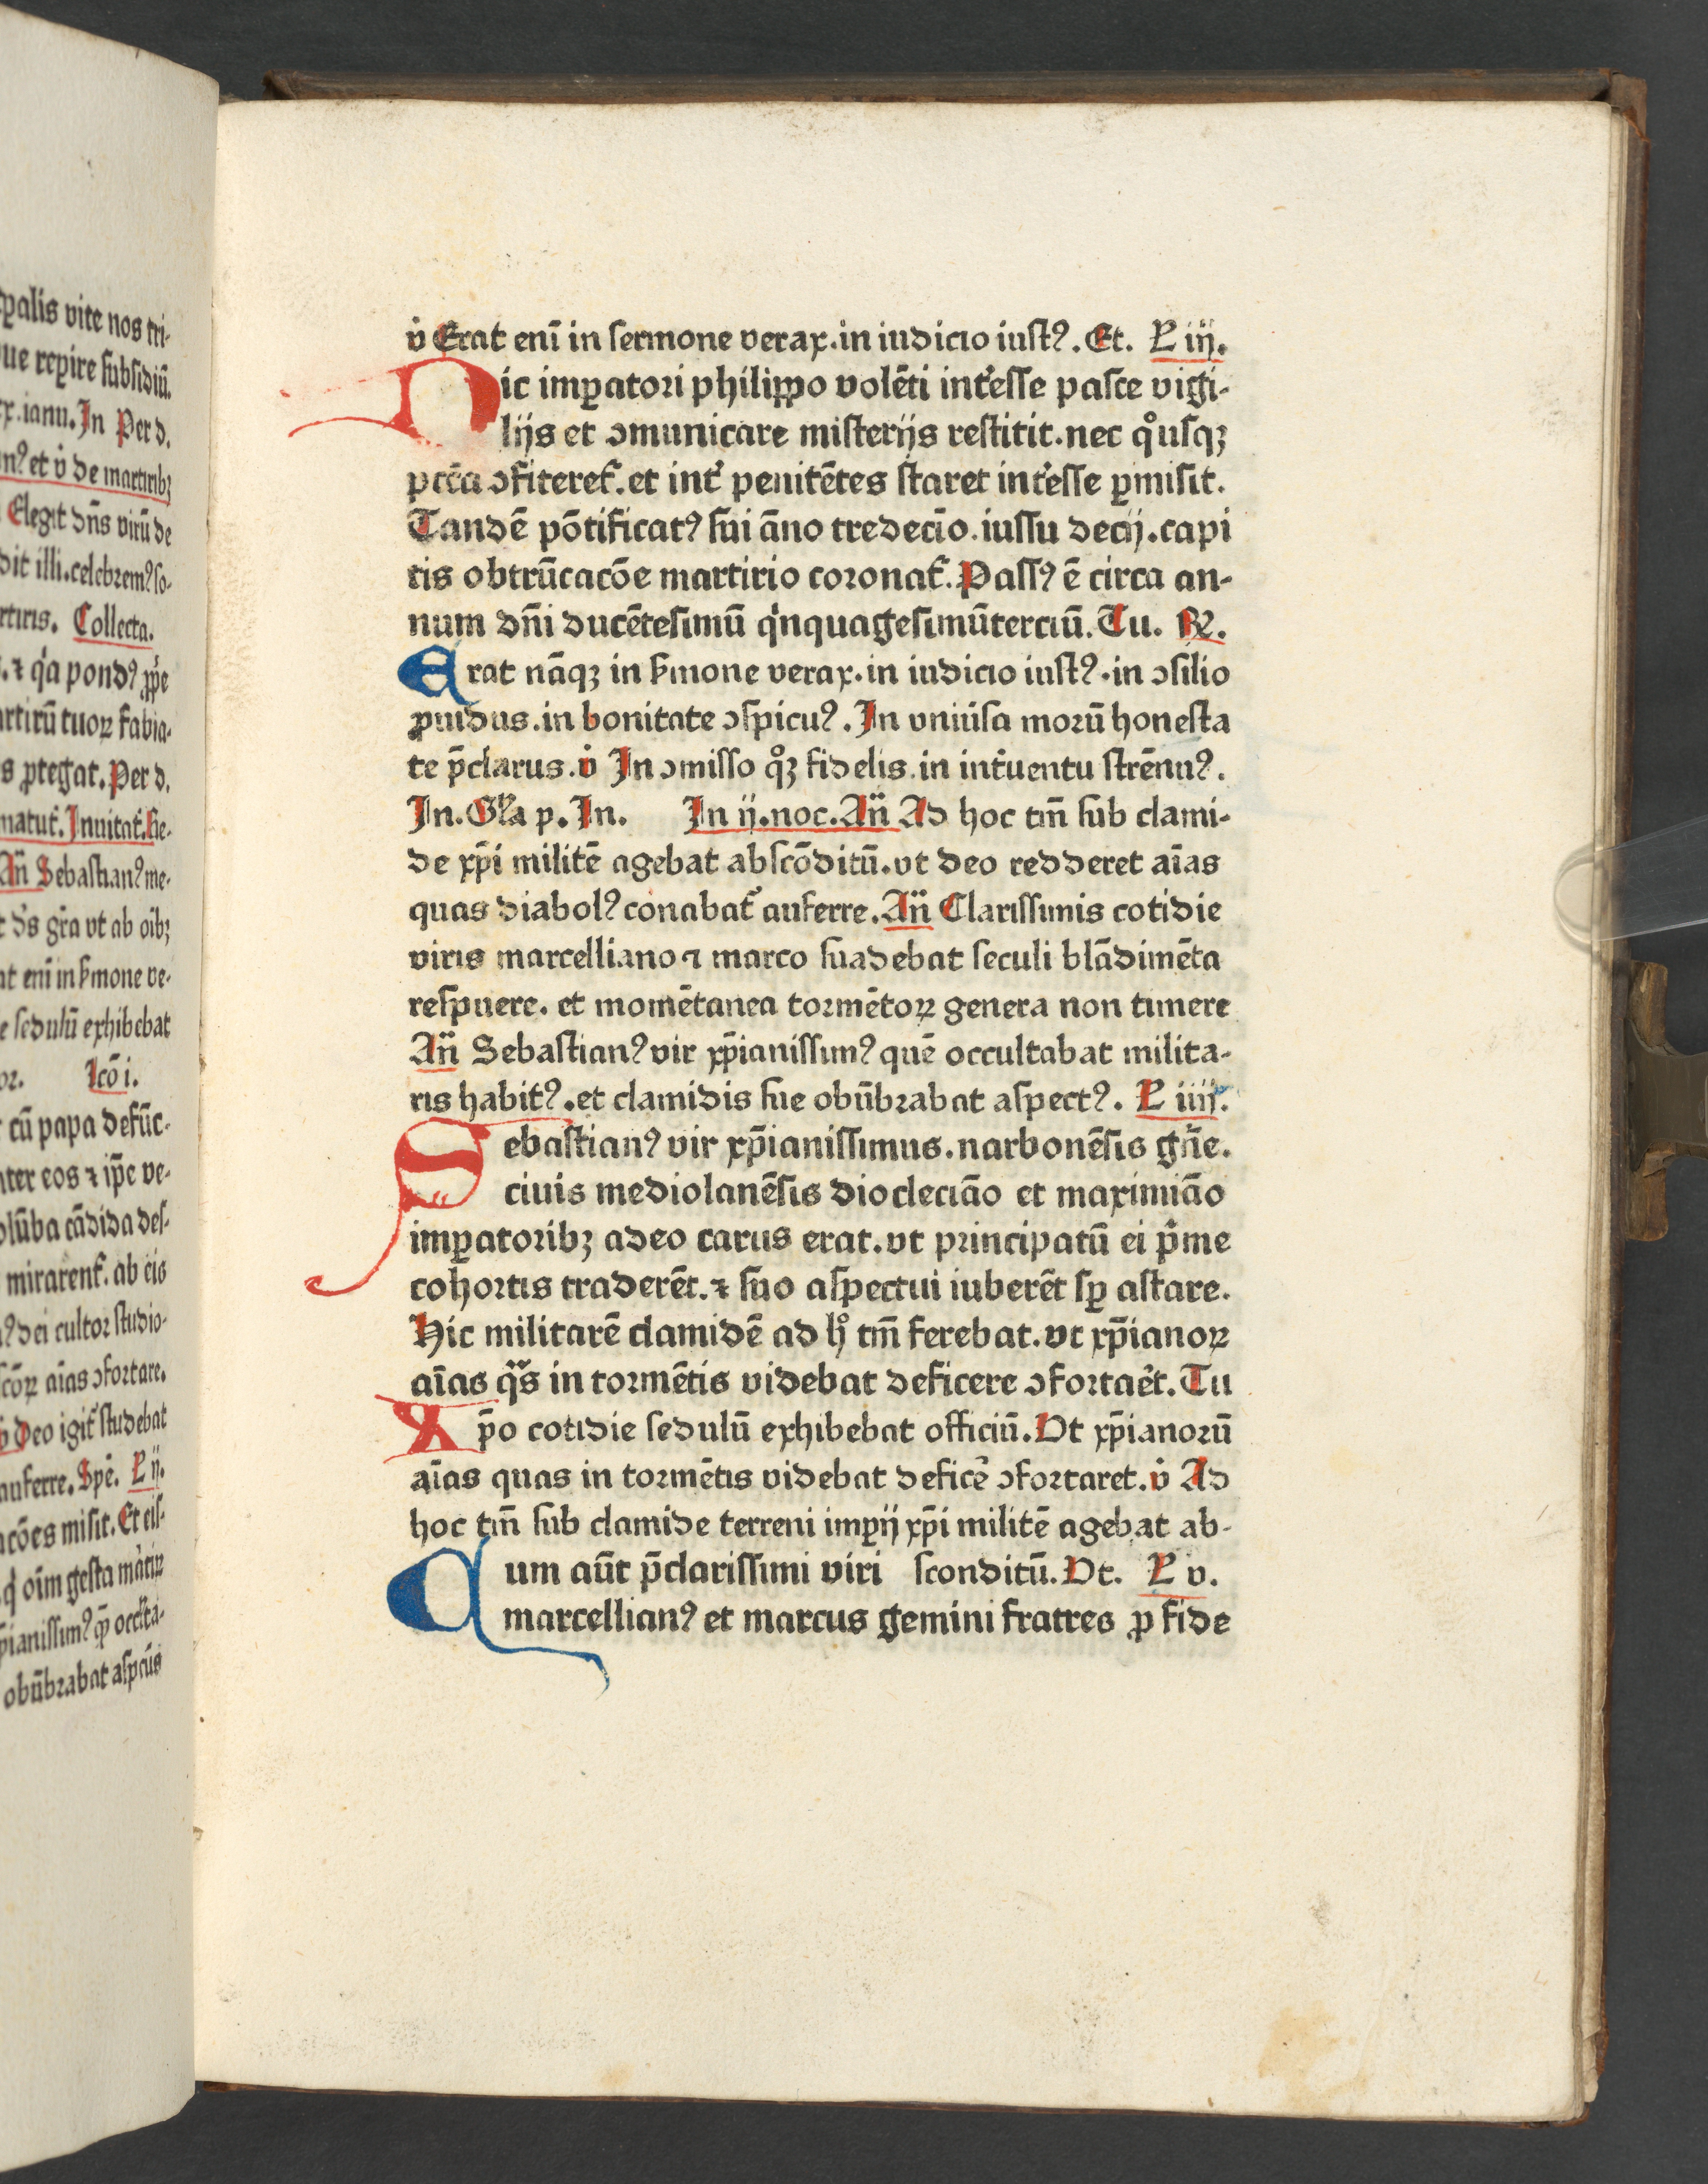 palis vite nos tri-
ue repire subsidiū.
ianu. In Per d.
n⁹ et v̇ de martirib⁊
Elegit dn̄s virū de
dit illi.celebrem⁹ so-
rtiris. Collecta.
⁊ qͥa pond⁹ ꝓp̄e
rtirū tuoꝝ fabia-
s ꝓtegat. Per d.
matut᷑. Inuitat᷑. He-
An̄ Sebastian⁹ me-
t d̄s gr̄a vt ab oīb⁊
at enī in ẜmone ve-
e sedulū exhibebat
or. Icō i.
cū papa defūc-
nter eos ⁊ ip̄e ve-
olūba cādida des-
mirarent᷑. ab eis
⁹ dei cultor studio-
scōꝝ aīas ↄfortare.
v̇ Deo igit᷑ studebat
auferre. Spē. L ij.
acōes misit. Et eis-
ꝙ oīm gesta mātiꝝ
pianissim⁹
obūbrabat aspcūs
v̇ Erat enī in sermone verax. in iudicio iust⁹. Et. L iij.
Dic imꝑatori philippo volēti int᷑esse pasce vigi-
lijs et ↄmunicare misterijs restitit. nec qͦusqꝫ
pcc̄a ↄfiteret᷑. et int᷑ penitētes staret int᷑esse ꝑmisit.
Tandē pōtificat⁹ sui āno tredecīo. iussu decij. capi
tis obtrūcacōe martirio coronat᷑. Pass⁹ ē circa an-
num dn̄i ducētesimū qͥnquagesimūterciū. Tu. ℞.
Erat nāqꝫ in ẜmone verax. in iudicio iust⁹. in ↄsilio
ꝓuidus. in bonitate ↄspicu⁹. In vniu᷑sa morū honesta
te p̄clarus. v̇ In ↄmisso qͦꝫ fidelis. in int᷑uentu strēnu⁹.
In. Gl̄a p. In. In ij. noc. An̄ Ad hoc tm̄ sub clami-
de xp̄i militē agebat abscōditū. vt deo redderet aīas
quas diabol⁹ conabat᷑ auferre. An̄ Clarissimis cotidie
viris marcelliano ⁊ marco suadebat seculi blādimēta
respuere. et momētanea tormētoꝝ genera non timere
An̄ Sebastian⁹ vir xp̄ianissim⁹ quē occultabat milita-
ris habit⁹. et clamidis sue obūbrabat aspect⁹. L iiij.
Sebastian⁹ vir xp̄ianissimus. narbonēsis gn̄e.
ciuis mediolanēsis diocleciāo et maximiāo
imꝑatorib⁊ adeo carus erat. vt principatū ei pͥme
cohortis traderēt. ⁊ suo aspectui iuberēt sꝑ astare.
Hic militarē clamidē ad hͦ tm̄ ferebat. vt xp̄ianoꝝ
aīas qͣs in tormētis videbat deficere ↄfortaēt. Tu
Xp̄o cotidie sedulū exhibebat officiū. Vt xp̄ianorū
aīas quas in tormētis videbat deficē ↄfortaret. v̇ Ad
hoc tm̄ sub clamide terreni imꝑij xp̄i militē agebat ab-
Cum aūt p̄clarissimi viri sconditū. Vt. L v.
marcellian⁹ et marcus gemini fratres ꝓ fide